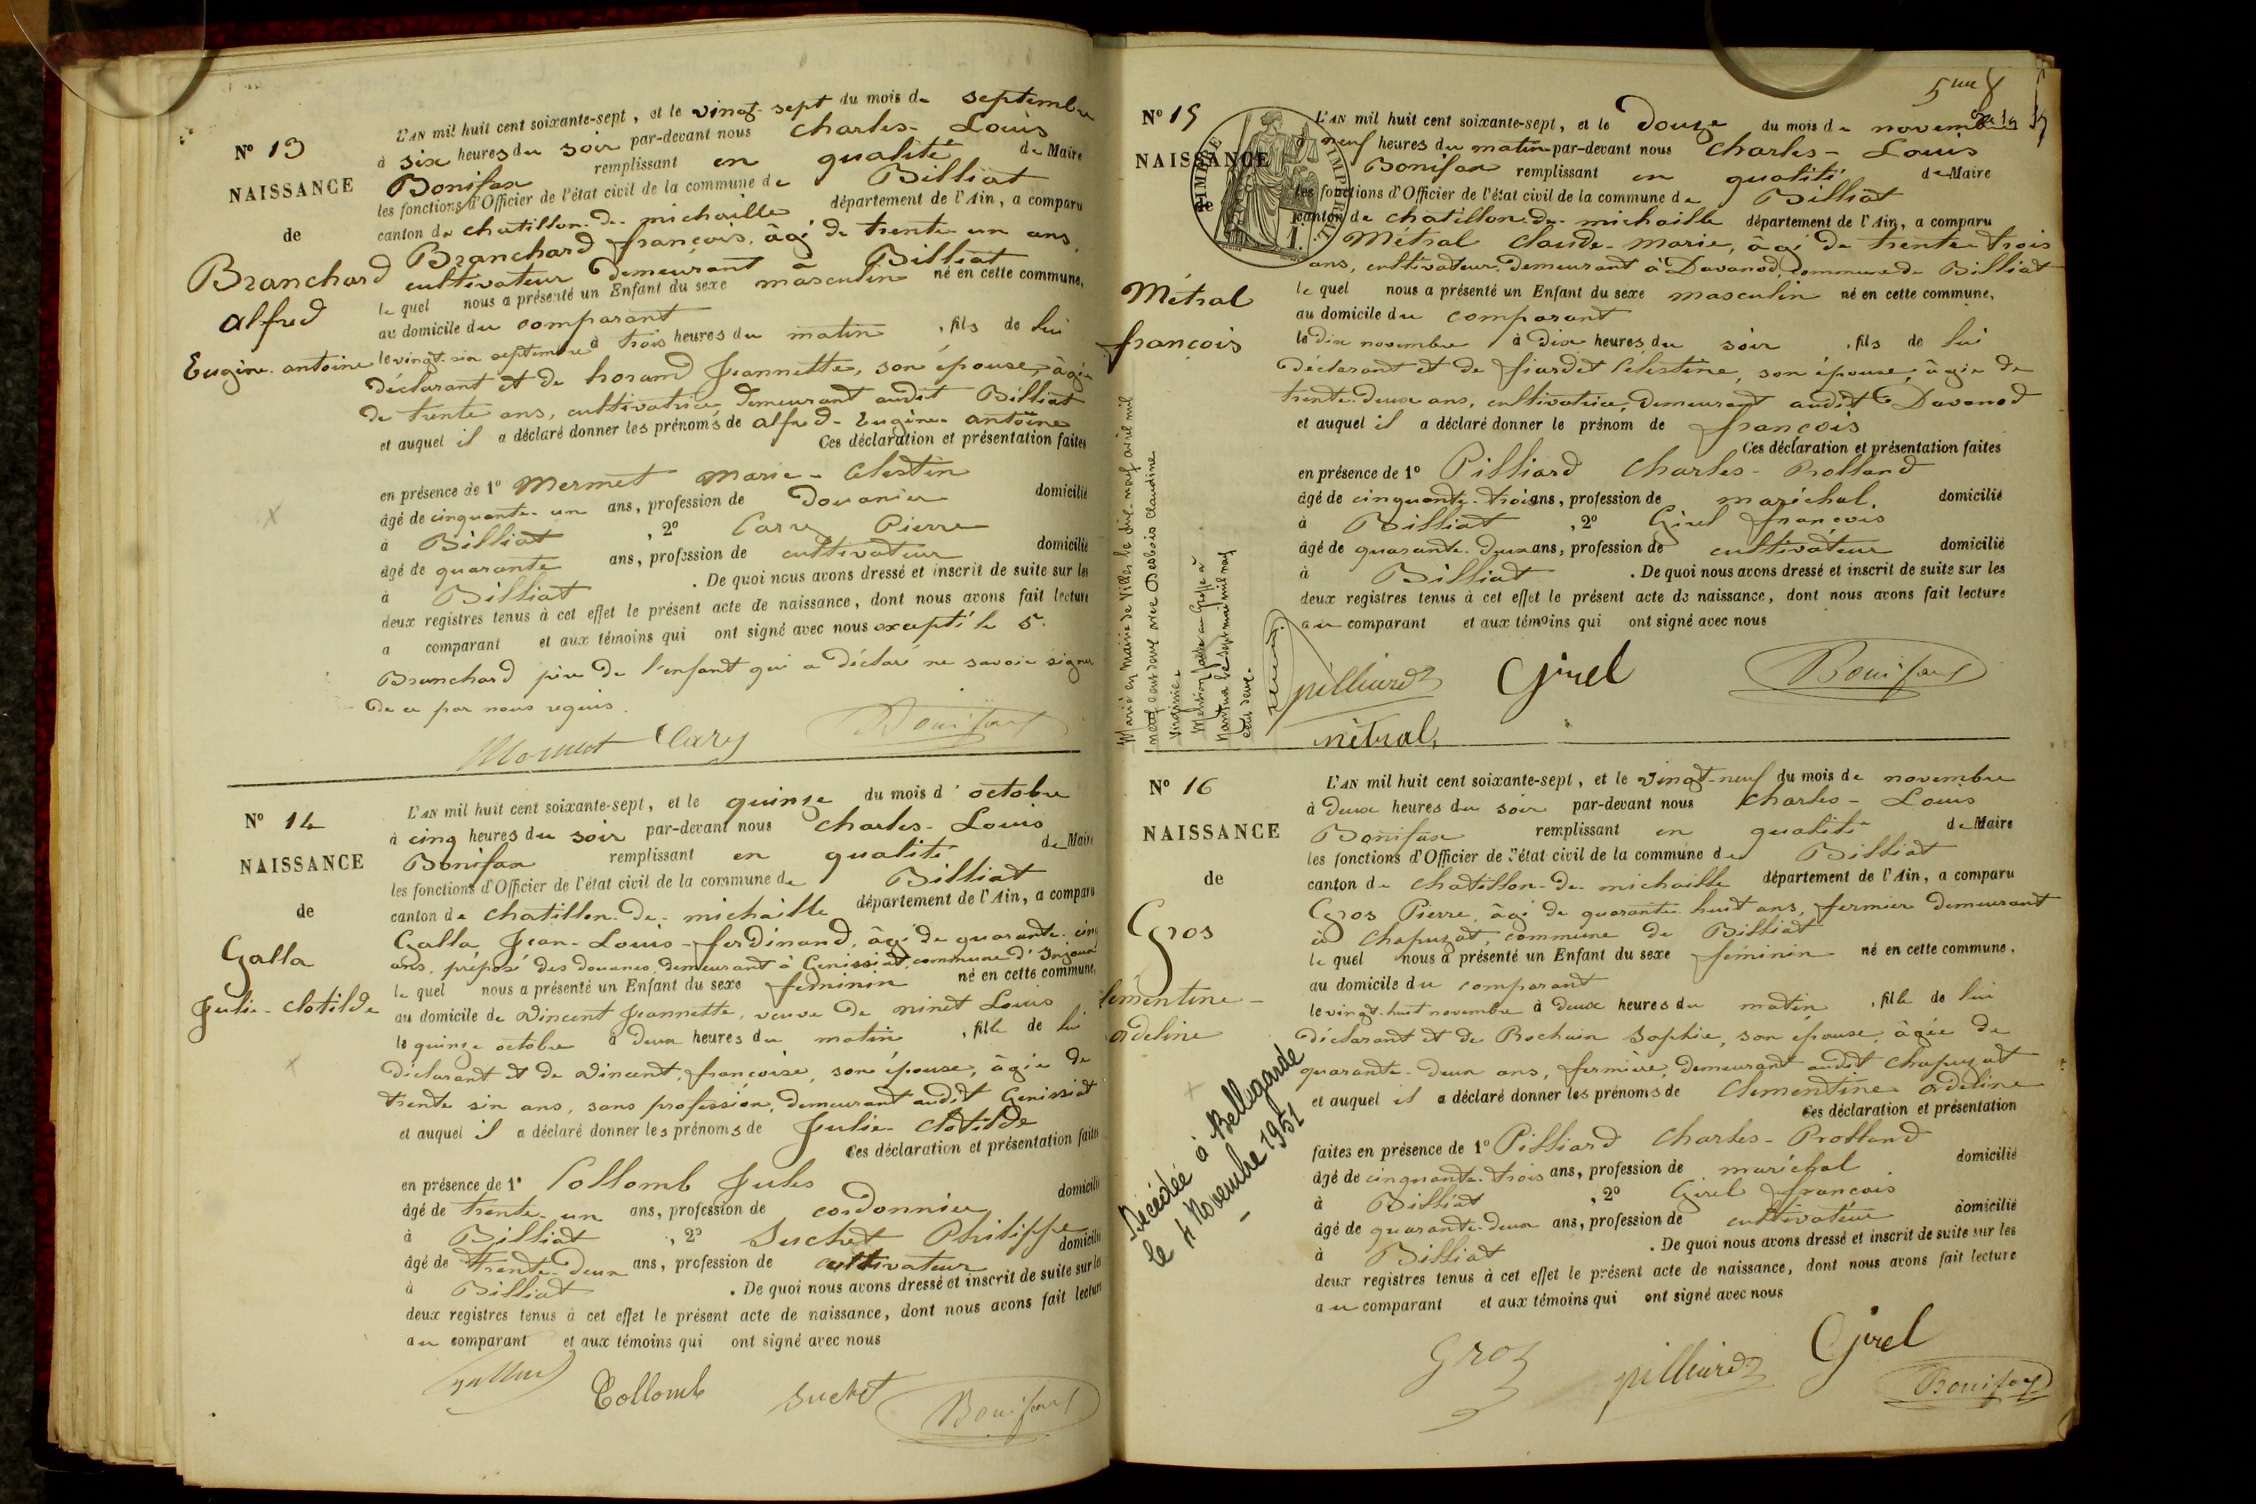 Nº 13
NAISSANCE
de
Branchard
alfred
Eugène antoine
L'AN mil huit cent soixante-sept, et le vingt-sept du mois de septembre
à six heures du soir par-devant nous Charles-Louis
Bonifax remplissant en qualité de Maire
les fonctions d'Officier de l'état civil de la commune de Billiat
canton de chatillon-de-michaille département de l'Ain, a comparu
Branchard françois, âgé de trente un ans,
cultivateur demeurant à Billiat
le quel nous a présenté un Enfant du sexe masculin né en cette commune,
au domicile du comparant
le vingt-six septembre à trois heures du matin, fils de lui
déclarant et de horand Jeannette, son épouse, âgée
de trente ans, cultivatrice demeurant audit Billiat
et auquel il a déclaré donner les prénoms de alfred-Eugène-antoine
Ces déclaration et présentation faites
en présence de 1º Mermet Marie-Celestin
âgé de cinquante-un ans, profession de Douanier domicilié
à Billiat, 2º Carry Pierre
âgé de quarante ans, profession de cultivateur domicilié
à Billiat. De quoi nous avons dressé et inscrit de suite sur les
deux registres tenus à cet effet le présent acte de naissance, dont nous avons fait lecture
a comparant et aux témoins qui ont signé avec nous excepté le Sr
Branchard père de l'enfant qui a déclaré ne savoir signer
de ce par nous requis.
Mermet Cary Bonifax
Nº 14
NAISSANCE
de
Galla
Julie-Clotilde
L'AN mil huit cent soixante-sept, et le quinze du mois d'octobre
à cinq heures du soir par-devant nous Charles-Louis
Bonifax remplissant en qualité de Maire
les fonctions d'Officier de l'état civil de la commune de Billiat
canton de Chatillon-de-michaille département de l'Ain, a comparu
Galla Jean-Louis-ferdinand, âgé de quarante-cinq
ans, préposé des douanes, demeurant à Genissiat, commune d'Injoux
le quel nous a présenté un Enfant du sexe feminin né en cette commune,
au domicile de Vincent Jeannette, veuve de ninet Louis
le quinze octobre à deux heures du matin, fille de lui
déclarant et de Vincent, françoise, son épouse, âgée de
trente six ans, sans profession, demeurant audit Genissiat
et auquel il a déclaré donner les prénoms de Julie-Clotilde
Ces déclaration et présentation faites
en présence de 1º Collomb Jules
âgé de trente-un ans, profession de cordonnier domicilié
à Billiat, 2º Suchet Philippe
âgé de trente-deux ans, profession de cultivateur domicilié
à Billiat. De quoi nous avons dressé et inscrit de suite sur les
deux registres tenus à cet effet le présent acte de naissance, dont nous avons fait lecture
au comparant et aux témoins qui ont signé avec nous
Collomb Suchet Bonifax
Nº 15
NAISSANCE
de
TIMBRE IMPERIAL
Métral
françois
L'AN mil huit cent soixante-sept, et le Douze du mois de novembre
à neuf heures du matin par-devant nous Charles-Louis
Bonifax remplissant en qualité de Maire
les fonctions d'Officier de l'état civil de la commune de Billiat
canton de chatillon-de-michaille département de l'Ain, a comparu
Métral Claude-Marie, âgé de trente-trois
ans, cultivateur, demeurant à Davanod, commune de Billiat
le quel nous a présenté un Enfant du sexe masculin né en cette commune,
au domicile du comparant
le dix novembre à dix heures du soir, fils de lui
déclarant et de fiardet Célestine, son épouse, âgée de
trente-deux ans, cultivatrice, demeurant audit Davanod
et auquel il a déclaré donner le prénom de françois
Ces déclaration et présentation faites
en présence de 1º Pilliard Charles-Rolland
âgé de cinquante-trois ans, profession de maréchal domicilié
à Billiat, 2º Girel françois
âgé de quarante-deux ans, profession de cultivateur domicilié
à Billiat. De quoi nous avons dressé et inscrit de suite sur les
deux registres tenus à cet effet le présent acte de naissance, dont nous avons fait lecture
au comparant et aux témoins qui ont signé avec nous
pilliard Girel Bonifax
métral
Marié en mairie de Villes le dix-neuf avril mil
neuf cent deux avec Desbois Claudine
Mention faite au Greffe à
Nantua le sept mai mil neuf
cent deux.
Nº 16
NAISSANCE
de
Gros
Clementine-
adeline
Décédée à Bellegarde
le 4 Novembre 1951
L'AN mil huit cent soixante-sept, et le vingt-neuf du mois de novembre
à deux heures du soir par-devant nous Charles-Louis
Bonifax remplissant en qualité de Maire
les fonctions d'Officier de l'état civil de la commune de Billiat
canton de Chatillon-de-michaille département de l'Ain, a comparu
Gros Pierre, âgé de quarante-huit ans, fermier demeurant
à Chapuzat, commune de Billiat
le quel nous a présenté un Enfant du sexe féminin né en cette commune,
au domicile du comparant
le vingt-huit novembre à deux heures du matin, fille de lui
déclarant et de Rochaix Sophie, son épouse, âgée de
quarante-deux ans, fermière, demeurant audit Chapuzat
et auquel il a déclaré donner les prénoms de Clementine adeline
Ces déclaration et présentation
faites en présence de 1º Pilliard Charles-Rolland
âgé de cinquante-trois ans, profession de maréchal domicilié
à Billiat, 2º Girel françois
âgé de quarante-deux ans, profession de cultivateur domicilié
à Billiat. De quoi nous avons dressé et inscrit de suite sur les
deux registres tenus à cet effet le présent acte de naissance, dont nous avons fait lecture
au comparant et aux témoins qui ont signé avec nous
Gros pilliard Girel
Bonifax